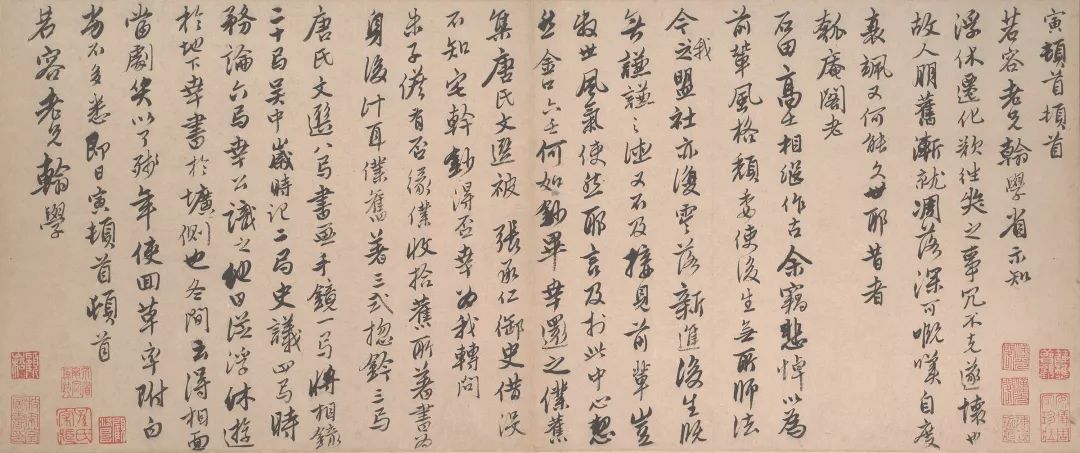 寅頓首頓首
若容老兄翰學省示知
浮休遷化欲往奠之事冗不克遂懷也
故人朋舊漸就凋落深可嘅嘆自度
衰颯又何能久世耶昔者
瓠庵閣老
石田高士相繼作古余竊悲悼以為
前輩風格頹委使後生無所師法
我今之盟社亦復零落新進後生既
無謙謙之德又不及接見前輩豈
衰世風氣使然耶言及於此中心愁
然金口六壬何如鈔畢幸還之僕舊
集唐氏文選被 張承仁御史借沒
不知宅幹鈔得否幸為我轉問
朱子儋有否緣僕收拾舊所著書為
身後計耳僕舊著三式捴鈐三卷
唐氏文選八卷書畫手鏡一卷將相錄
二十卷吳中歲時記二卷史議四卷時
務論六卷幸公識之他日從浮休遊
於地下幸書於壙側也冬間云得相面
當劇笑以了殘年使回草率附白
尚不多悉即日寅頓首頓首
若容老兄翰學